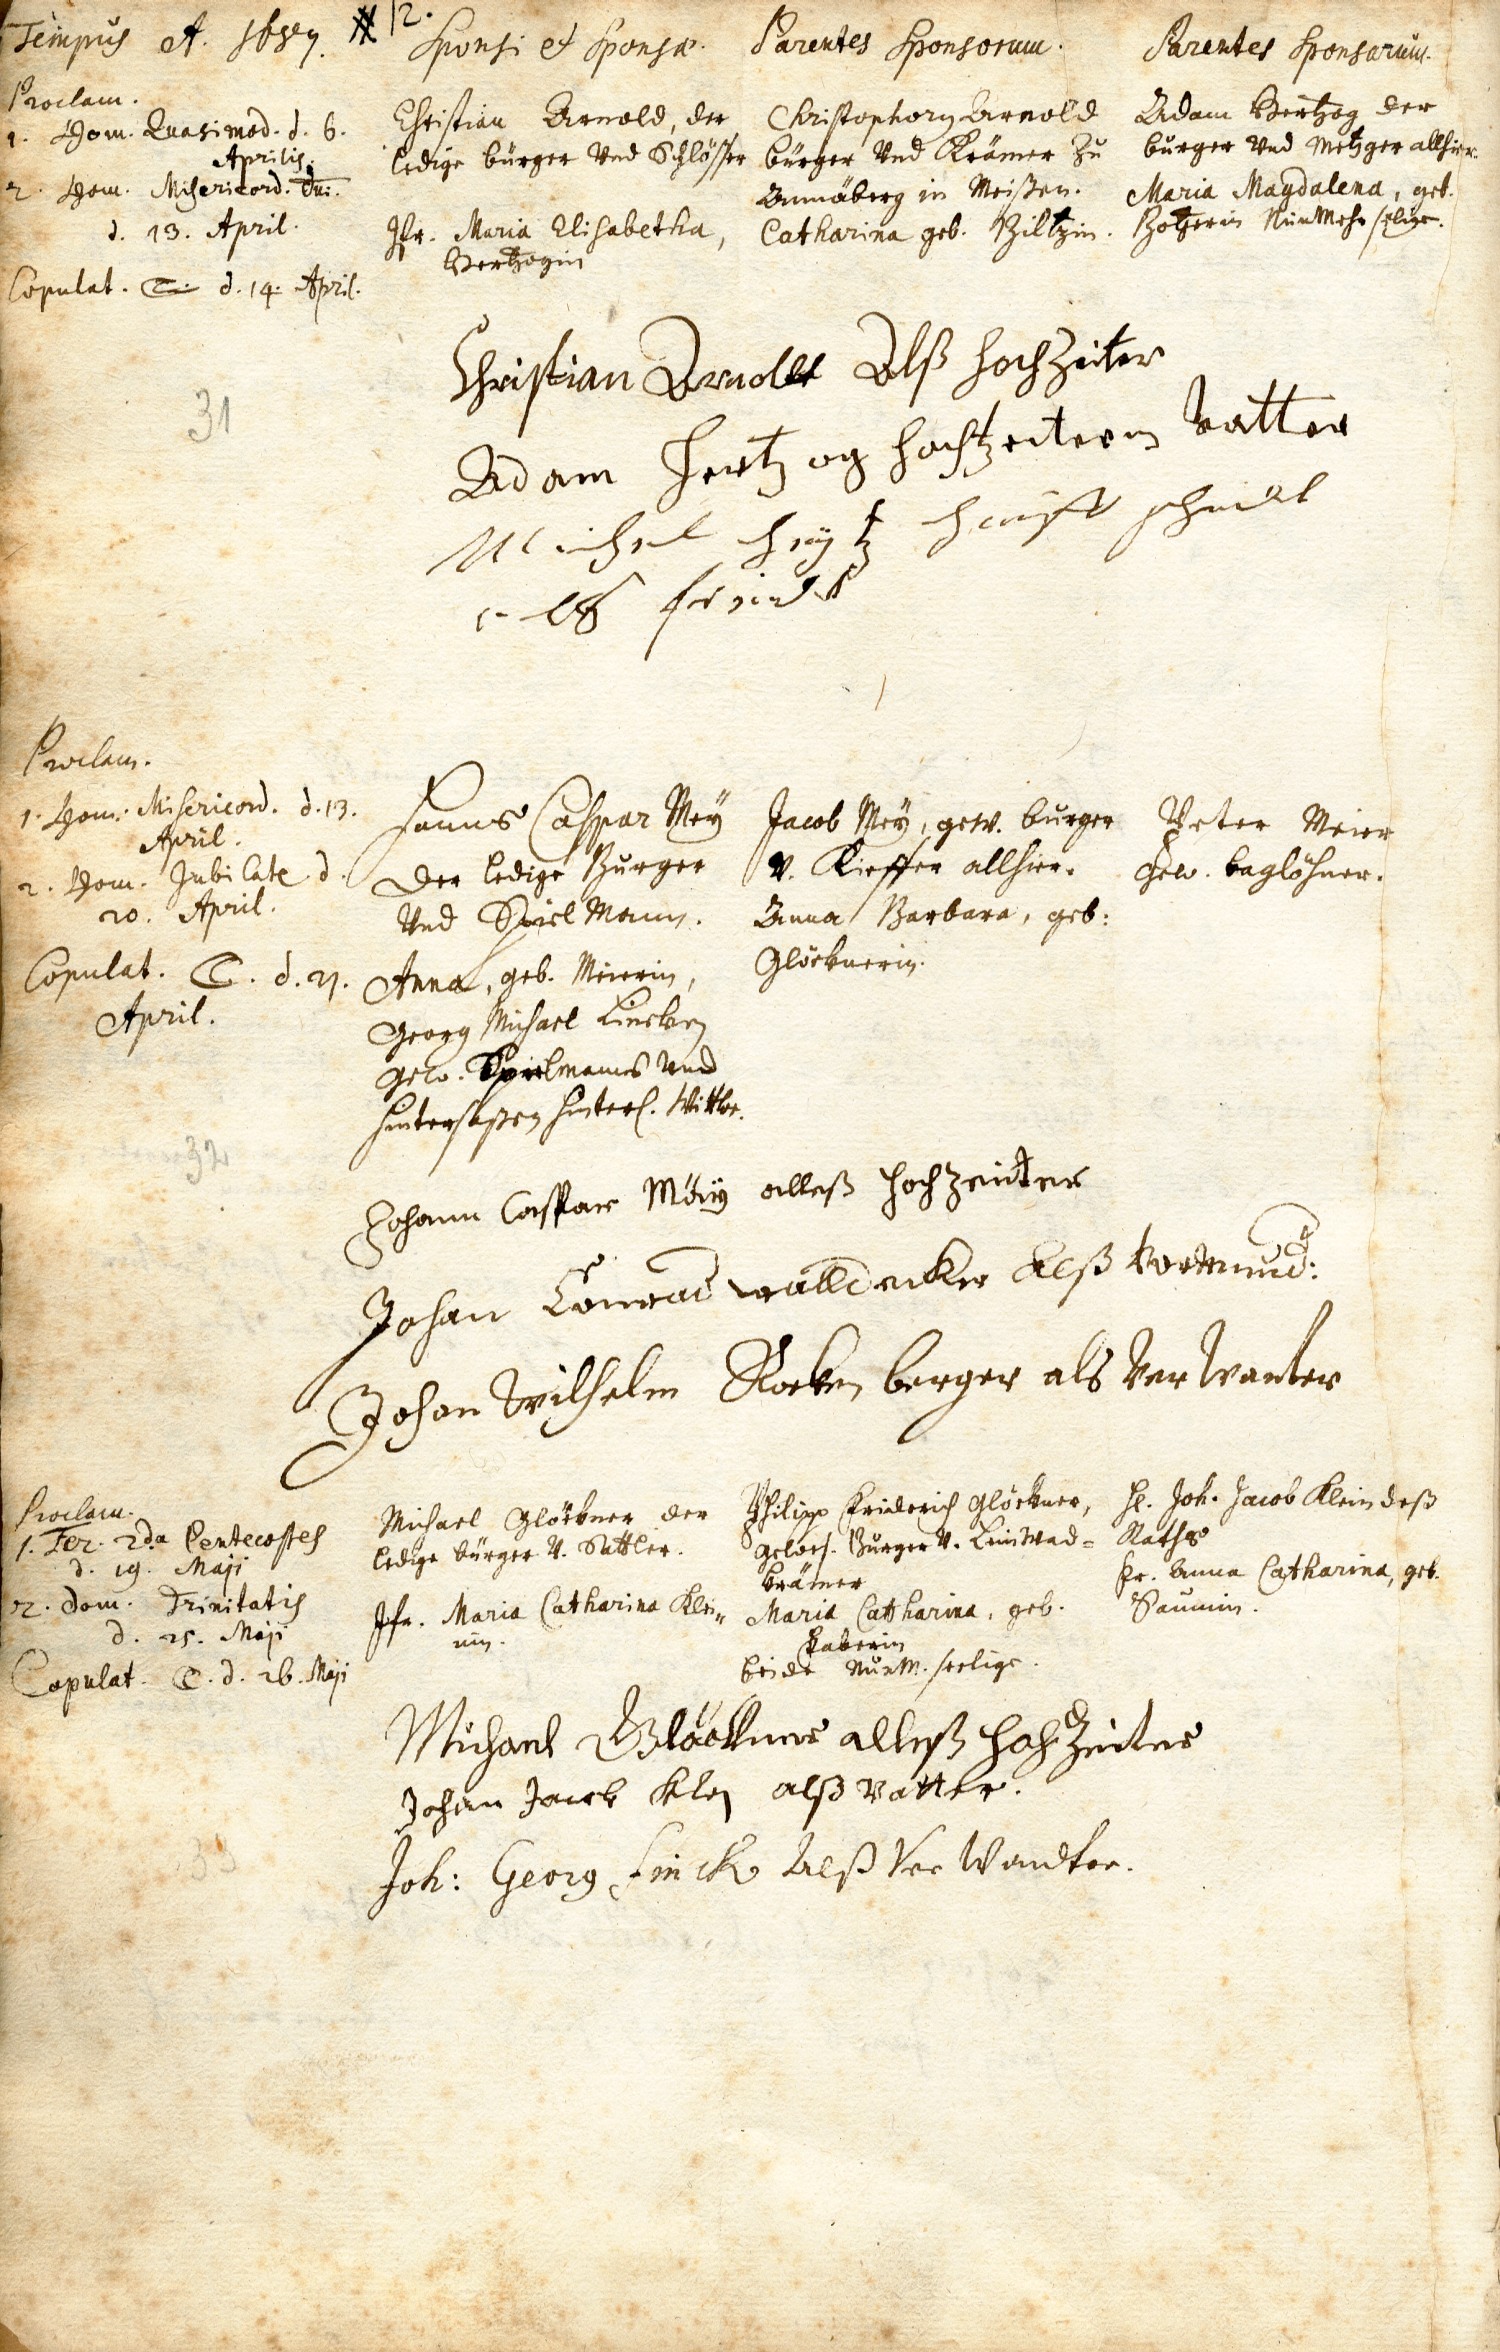 Tempus A. 1687.
12.
Sponsi et Sponsæ.
Parentes Sponsorum.
Parentes Sponsarum.
Proclam.
1. Dom. Quasimod. d. 6.
Aprilis.
2. Dom. Misericord. Dni.
d. 13. April.
Copulat. C. d. 14. April.
Christian Arnold, der
ledige bürger Und Schlösser
Jfr. Maria Elisabetha,
Hertzogin
Christophorg Arnold
bürger Und Krämer Zu
Annäberg in Meißen.
Catharina geb. Biltzin.
Adam Hertzog der
burger Und Metzger allhier.
Maria Magdalena, geb.
Botzerin NunMehr selige.
Christian Arnoldt Alß HochZeiter
31
Adam Hertzog Hochtzeiterin Vatter
Michel
alß freindt
Proclam.
1. Dom. Misericord. d. 13.
April.
2. Dom. Jubilate d.
20. April.
Copulat. C. d. 21.
April.
Hanns Caspar Meÿ
Der ledige Burger
Und SpielMann.
Anna, geb. Meierin,
Georg Michael Lincken
gew. Spielmanns Und
Hintersaßen Hinterl. Wittbe.
Jacob Meÿ, gew. burger
V. Kieffer allhier.
Anna Barbara, geb:
Glöcknerin.
Peter Meier
gew. taglöhner.
32
Johann Caspar Möÿ alleß HochZeiter
Johan Conrad Alß Vormund:
Johan Wilhelm Rockenberger als VerWanter
Proclam.
1. Fer. 2da Pentecostes
d. 19. Maji
2. Dom. Trinitatis
d. 25. Maji
Copulat. C. d. 26. Maji
Michael Glöckner der
ledige bürger V. Sattler.
Jfr. Maria Catharina Klei-
nin.
Philipp Friderich Glöckner,
gewes. Burger V. Leinwad-
krämer
Maria Catharina, geb.
Faberin
beide NunM. seelige.
H. Joh. Jacob Klein deß
Raths
Fr. Anna Catharina, geb.
Saumin.
Michael Glöckner alleß HochZeiter
Johan Jacob Klej alß Vatter.
33
Joh: Georg Finck Alß VerWandter.